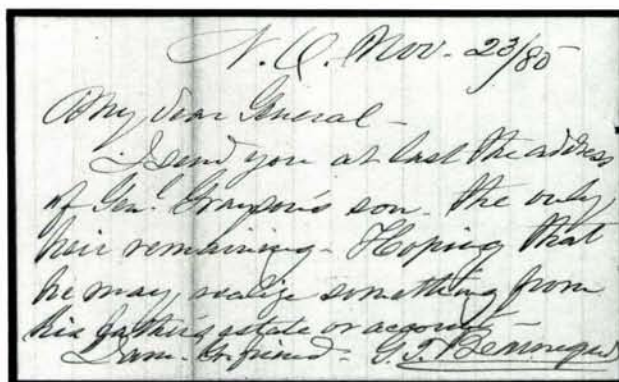 N.O. Nov. 23/85
My dear General -
I send you at last the address
of Genl. Grayson's son - the only
heir remaining - Hoping that
he may realize something from
his father's estate or account
I am - Yr friend - G.T. Beauregard